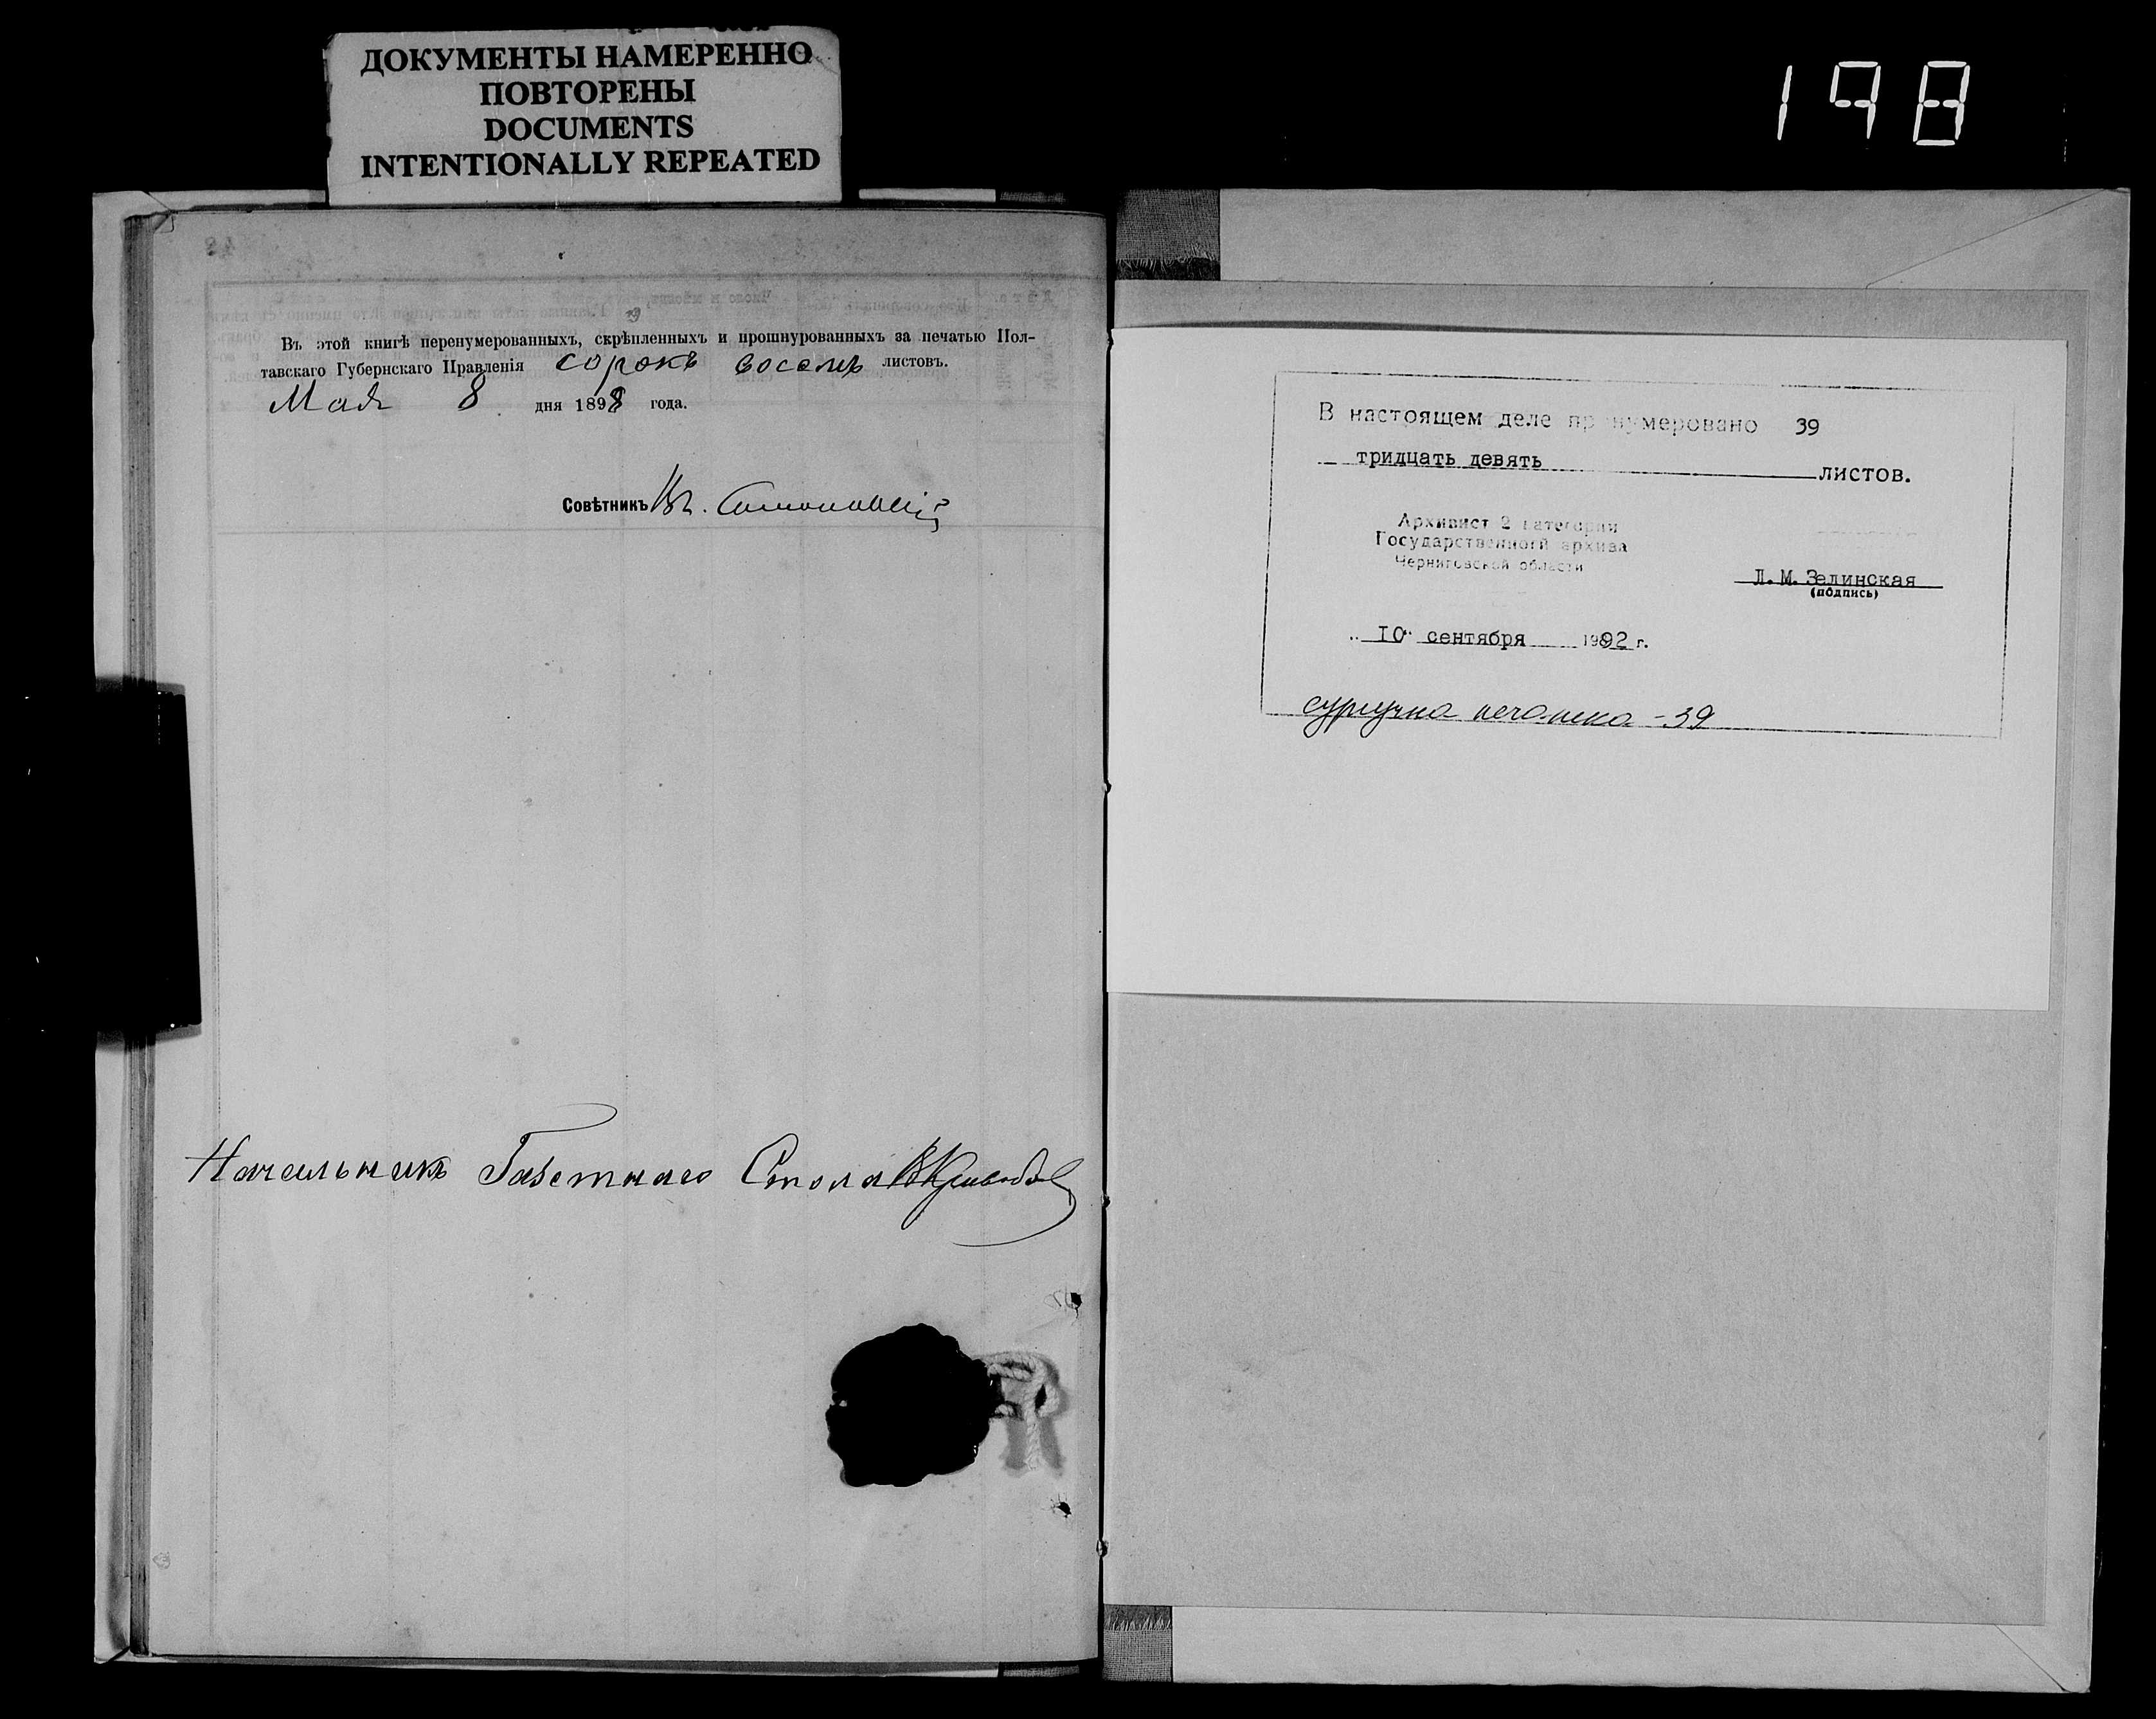 ДОКУМЕНТЫ НАМЕРЕННО
ПОВТОРЕНЫ
DOCUMENTS
INTENTIONALLY REPEATED
198
Въ этой книгѣ перенумерованныхъ, скрѣпленныхъ и прошнурованныхъ за печатью Пол-
тавскаго Губернскаго Правленія сорокъ восемь листовъ.
Мая 8 дня 1898 года.
Совѣтникъ Вл.
Начальникъ Газетнаго Стола
В настоящем деле пронумеровано 39
тридцать девять листов.
Архивист 2 категории
Государственногй архива
Черниговской области
Л.М.Зелинская
(подпись)
„ 10 " сентября 1992 г.
сургучна печатка - 39